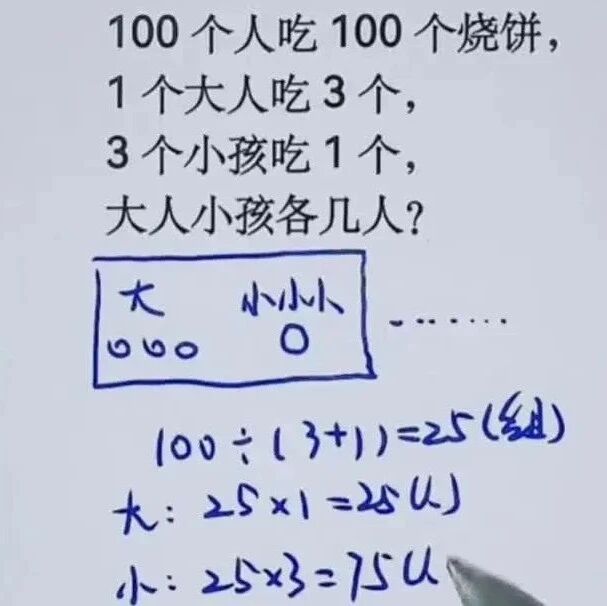 100 个人吃 100 个烧饼，
1 个大人吃 3 个，
3 个小孩吃 1 个，
大人小孩各几人？
大 小小小
100÷(3+1)=25(组)
大: 25×1=25(人)
小: 25×3=75(人